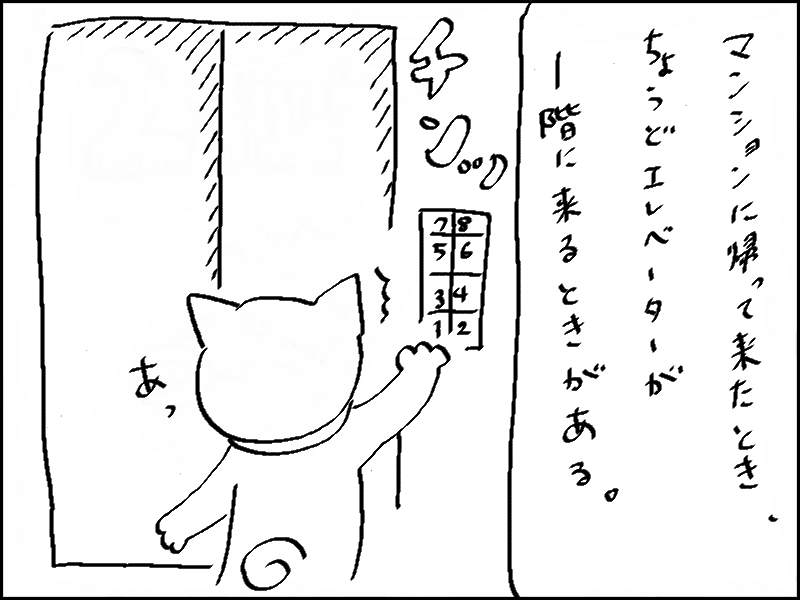 マンションに帰って来たとき、
ちょうどエレベーターが
一階に来るときがある。
チンッ…
7 8
5 6
3 4
1 2
あっ